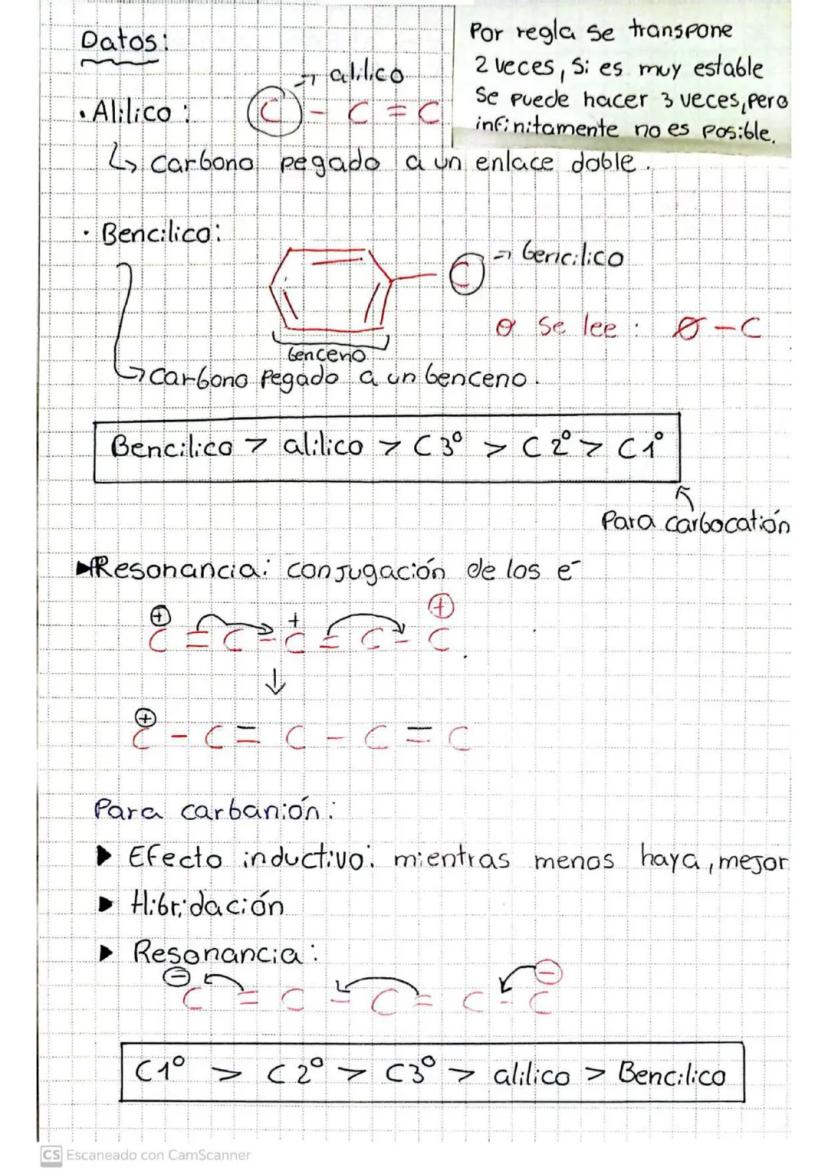 Datos:
Por regla se transpone
2 veces, si es muy estable
se puede hacer 3 veces, pero
infinitamente no es posible.
→ alilico
• Alilico: C - C = C
↳ carbono pegado a un enlace doble.
• Bencilico:
C → bencilico
o se lee: Ø - C
benceno
→ carbono pegado a un benceno.
Bencilico > alilico > C 3° > C 2° > C 1°
Para carbocatión
▶ Resonancia: conjugación de los e⁻
⊕ + ⊕
C = C - C = C - C
↓
⊕
C - C = C - C = C
Para carbanión:
▶ Efecto inductivo: mientras menos haya, mejor
▶ Hibridación
▶ Resonancia:
⊖ ⊖
C = C - C = C - C
C1° > C2° > C3° > alilico > Bencilico
CS Escaneado con CamScanner